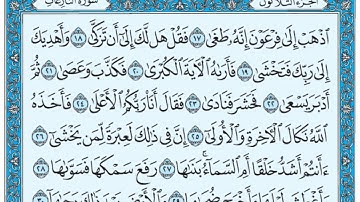 الجزء الثلاثون سورة النازعات
ٱذْهَبْ إِلَىٰ فِرْعَوْنَ إِنَّهُۥ طَغَىٰ ١٧ فَقُلْ هَل لَّكَ إِلَىٰٓ أَن تَزَكَّىٰ ١٨ وَأَهْدِيَكَ
إِلَىٰ رَبِّكَ فَتَخْشَىٰ ١٩ فَأَرَىٰهُ ٱلْـَٔايَةَ ٱلْكُبْرَىٰ ٢٠ فَكَذَّبَ وَعَصَىٰ ٢١ ثُمَّ
أَدْبَرَ يَسْعَىٰ ٢٢ فَحَشَرَ فَنَادَىٰ ٢٣ فَقَالَ أَنَا۠ رَبُّكُمُ ٱلْأَعْلَىٰ ٢٤ فَأَخَذَهُ
ٱللَّهُ نَكَالَ ٱلْـَٔاخِرَةِ وَٱلْأُولَىٰٓ ٢٥ إِنَّ فِى ذَٰلِكَ لَعِبْرَةً لِّمَن يَخْشَىٰٓ ٢٦
ءَأَنتُمْ أَشَدُّ خَلْقًا أَمِ ٱلسَّمَآءُ بَنَىٰهَا ٢٧ رَفَعَ سَمْكَهَا فَسَوَّىٰهَا ٢٨
وَأَغْطَشَ لَيْلَهَا وَأَخْرَجَ ضُحَىٰهَا ٢٩ وَٱلْأَرْضَ بَعْدَ ذَٰلِكَ دَحَىٰهَآ ٣٠